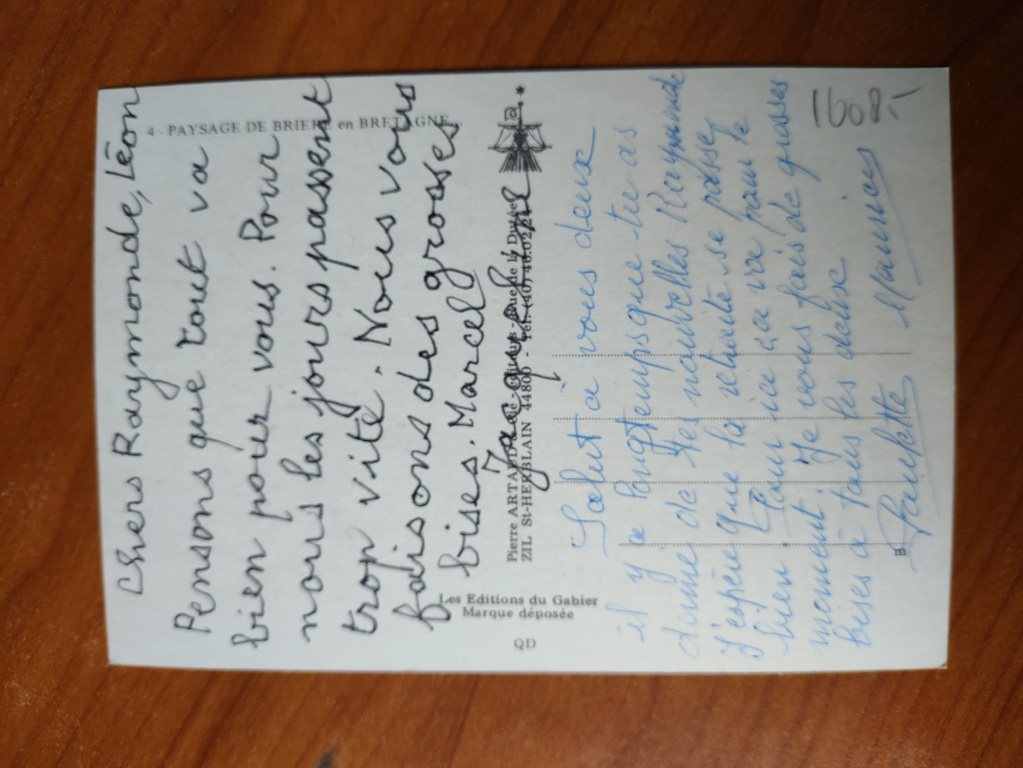 4 - PAYSAGE DE BRIERE en BRETAGNE
Chers Raymonde, Léon
Pensons que tout va
bien pour vous. Pour
nous les jours passent
trop vite. Nous vous
faisons des grosses
bises. Marcel
Jacqueline
Les Editions du Gabier
Marque déposée
QD
Pierre ARTAUD
ZIL St-HERBLAIN 44800
Salut à vous deux
il y a longtemps que tu as
donné de tes nouvelles Raymonde
J'espère que la retraite se passe
bien. Pour ici ça va pour le
moment. Je vous fais de grosses
bises à tous les deux
Paulette Maurice
1608.-